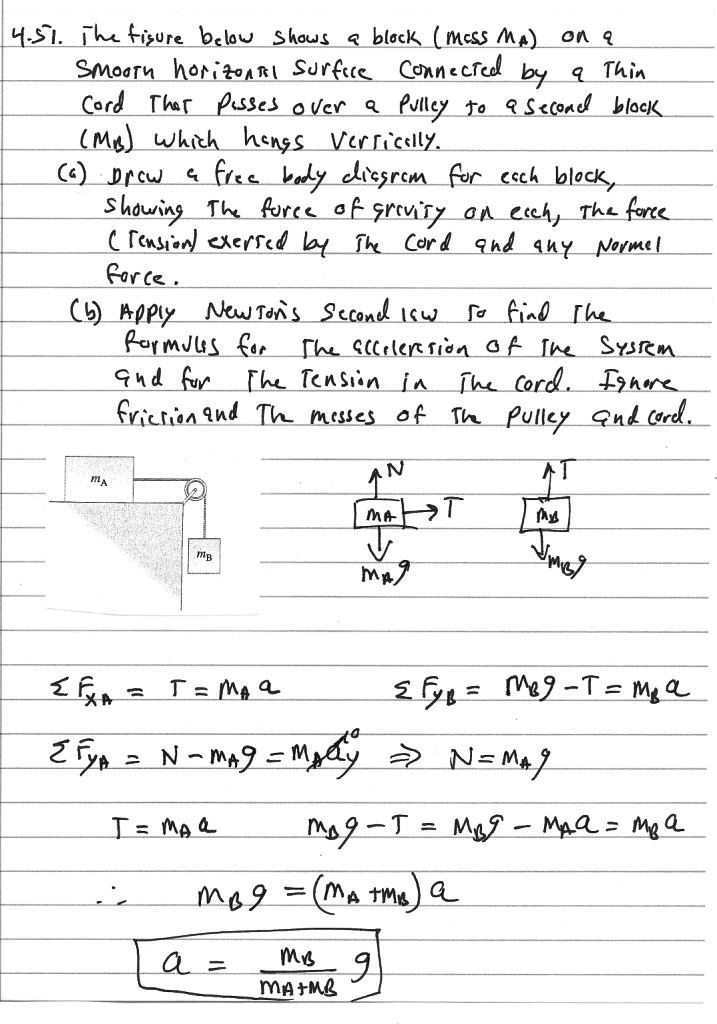 4-51. The figure below shows a block (mass MA) on a
smooth horizontal surface connected by a thin
cord that passes over a pulley to a second block
(MB) which hangs vertically.
(a) Draw a free body diagram for each block,
showing the force of gravity on each, the force
(Tension) exerted by the cord and any Normal
force.
(b) Apply Newton's second law to find the
formulas for the acceleration of the system
and for the Tension in the cord. Ignore
friction and the masses of the pulley and cord.
mA
mB
N
mA T
mAg
T
mB
mBg
Σ FxA = T = mA a Σ FyB = mBg - T = mB a
Σ FyA = N - mAg = mA ay 0 ⇒ N = mA g
T = mA a mBg - T = mBg - mA a = mB a
∴ mBg = (mA + mB) a
a = mB / (mA + mB) g